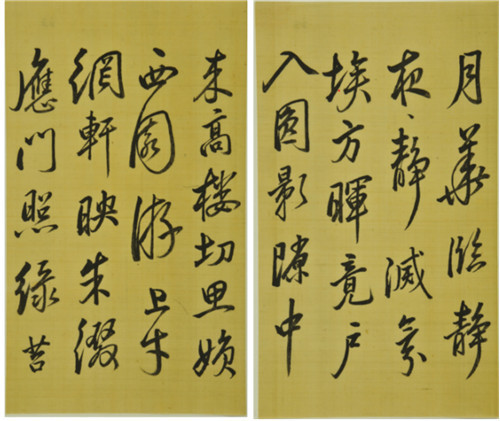 月華臨靜
夜〻靜滅氛
埃方暉竟戶
入圓影隙中
来高楼切思媍
西園游上才
網軒映朱綴
應門照綠苔